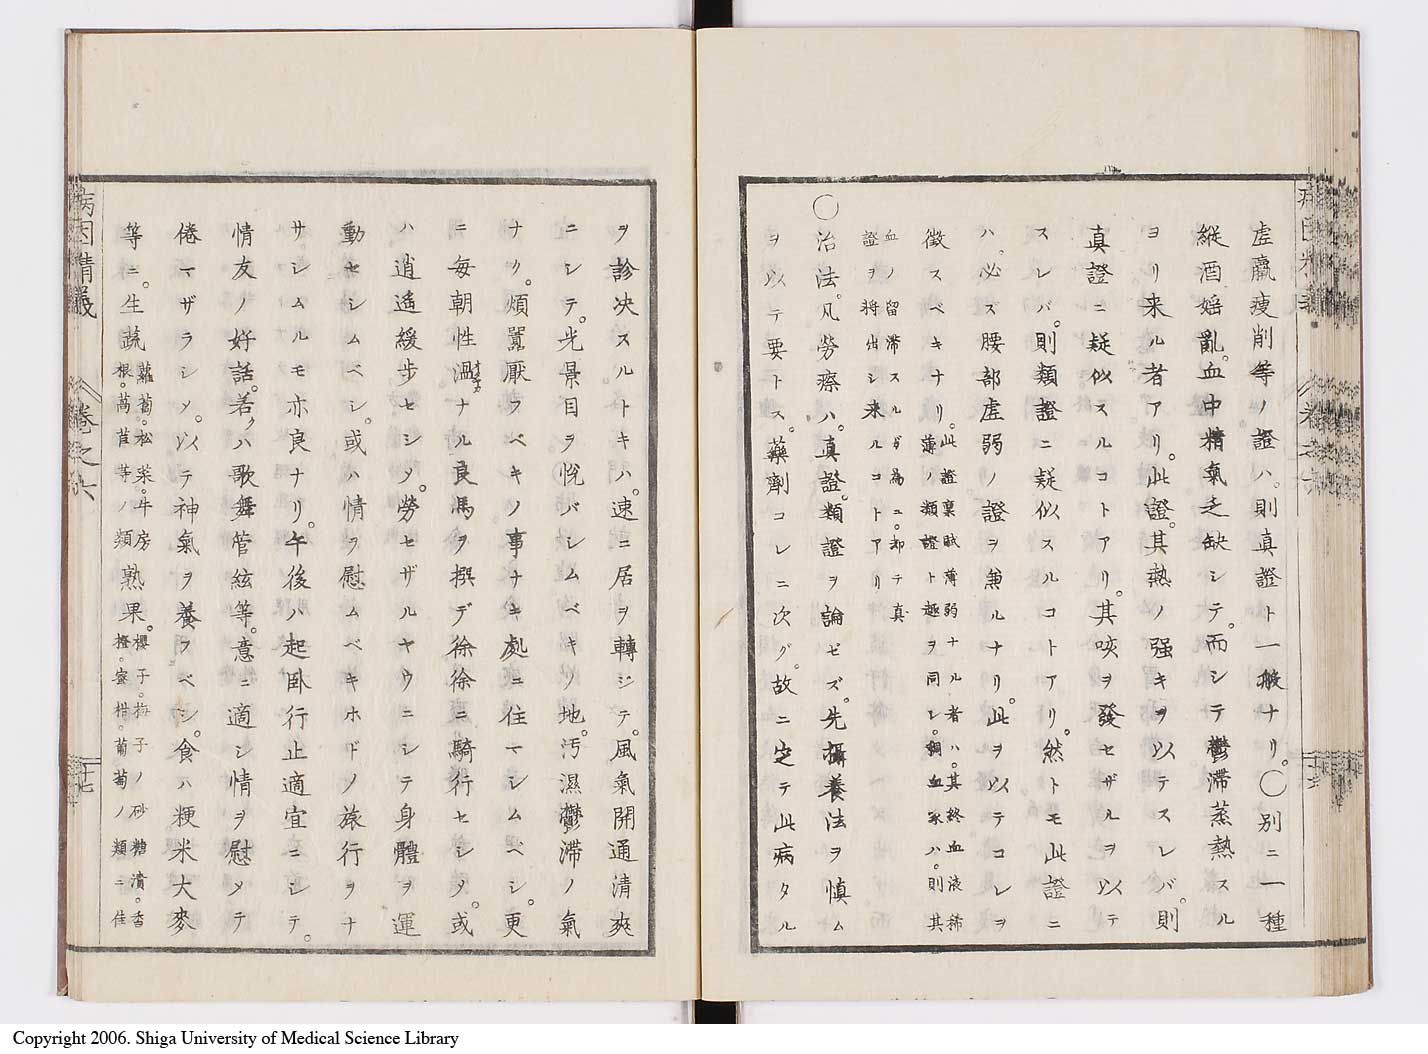 虚羸痩削等ノ證ハ。則真證ト一般ナリ。〇別ニ一種
縦酒婬亂。血中精氣乏缺シテ。而シテ鬱滞蒸熱スル
ヨリ来ル者アリ。此證。其熱ノ强キヲ以テスレバ。則
真證ニ疑似スルコトアリ。其咳ヲ發セザルヲ以テ
スレバ。則類證ニ疑似スルコトアリ。然トモ此證ニ
ハ。必ズ腰部虚弱ノ證ヲ兼ルナリ。此ヲ以テコレヲ
徴スベキナリ。此證稟賦薄弱ナル者ハ。其終血液稀
薄ノ類證ト趣ヲ同シ。
血ノ留滞スルガ為ニ。却テ真
證ヲ将出シ来ルコトアリ
〇治法。凡勞瘵ハ。真證。類證ヲ論ゼズ。先攝養法ヲ慎ム
ヲ以テ要トス。藥劑コレニ次グ。故ニ定テ此病タル
ヲ診决スルトキハ。速ニ居ヲ轉ジテ。風氣開通清爽
ニシテ。光景目ヲ悅バシムベキノ地。汚濕鬱滞ノ氣
ナリ。煩囂厭フベキノ事ナキ處ニ住マシムベシ。更
ニ毎朝性温ナル良馬ヲ撰デ徐徐ニ騎行セシメ。或
ハ逍遥緩歩セシメ。勞セザルヤウニシテ身體ヲ運
動セシムベシ。或ハ情ヲ慰ムベキホドノ旅行ヲナ
サシムルモ亦良ナリ。午後ハ起卧行止適宜ニシテ。
情友ノ好話。若クハ歌舞管絃等。意ニ適シ情ヲ慰メテ
倦マザラシメ。以テ神氣ヲ養フベシ。食ハ粳米大麥
等ニ。生蔬蘿蔔。松菜。牛房
根。萵苣等ノ類熟果。櫻子。梅子ノ砂糖漬。香
橙。蜜柑。葡萄ノ類ニ佳
病因精義
卷之六
十七
Copyright 2006. Shiga University of Medical Science Library